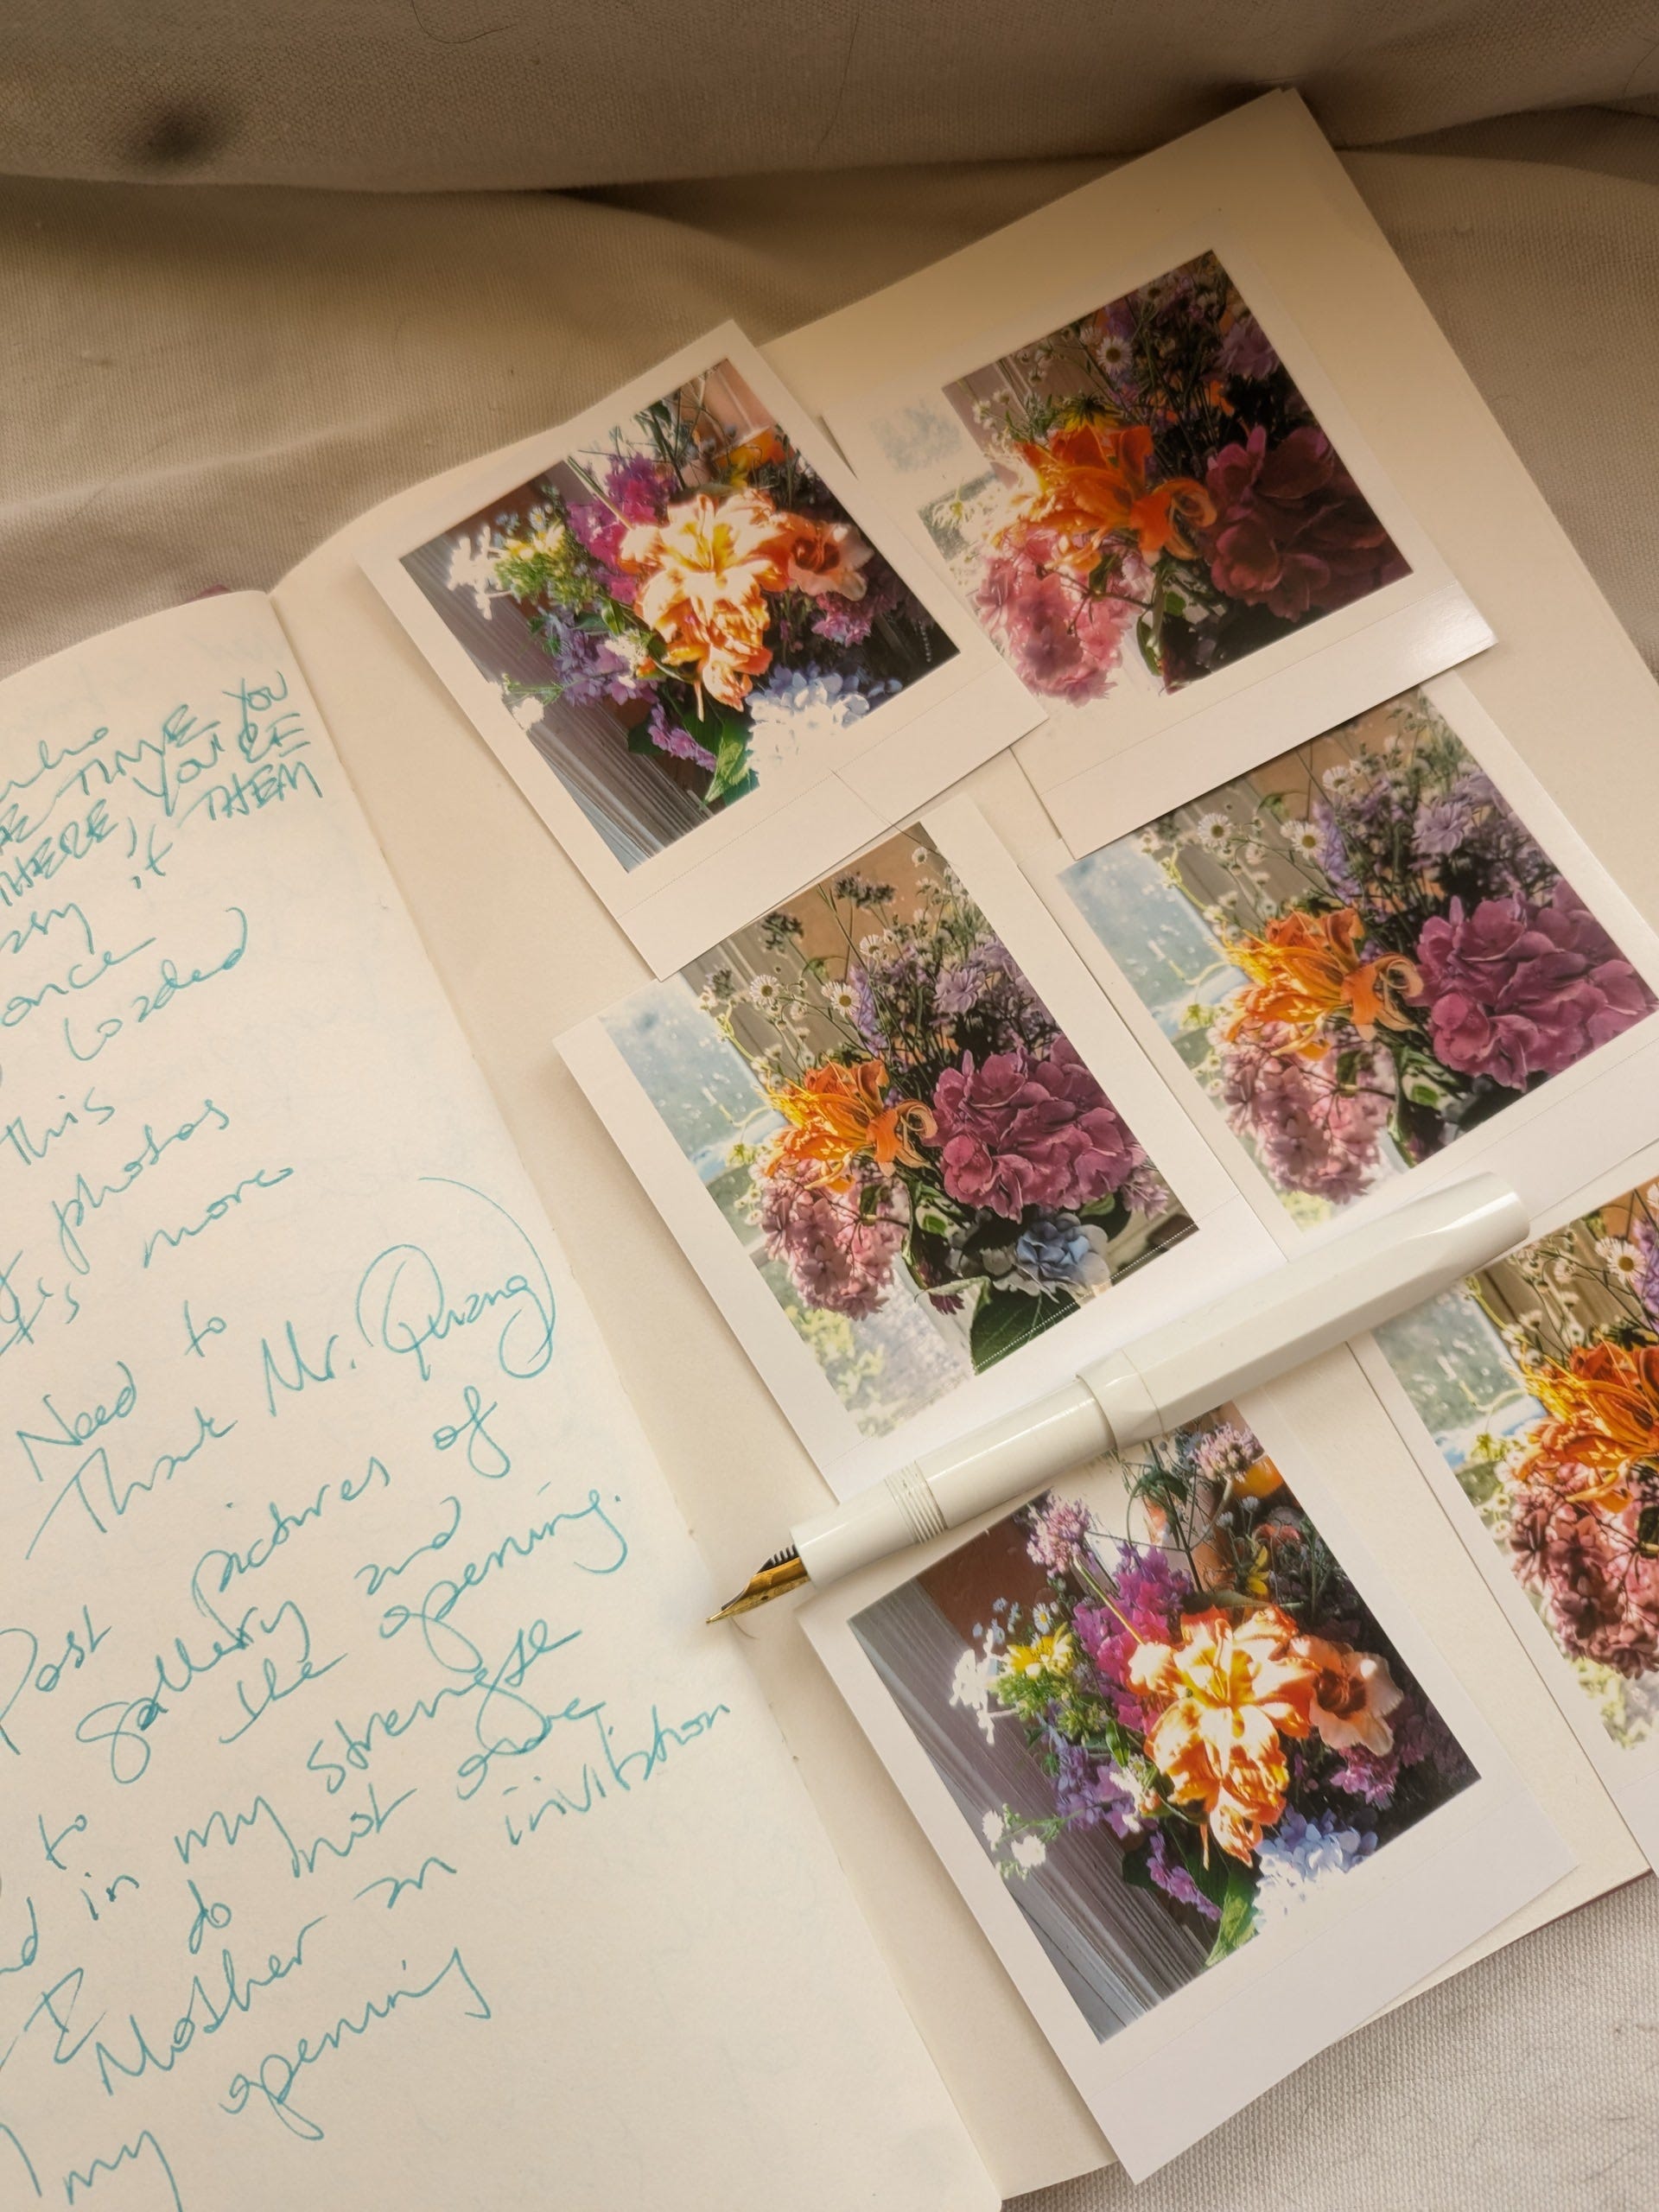 TIME YOU
HERE, YOU'RE
it THEM
once
loaded
this
photos
more
Need to
Thank Mr. Quang
Post pictures of
gallery and
the opening.
to
in my strange
I do not owe
Mother an invitation
my opening